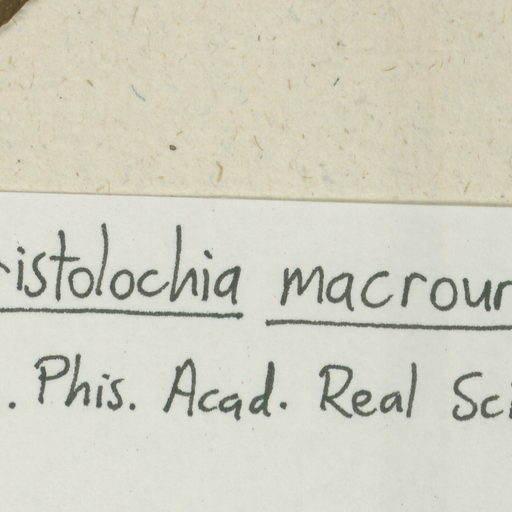 ristolochia macrour
. Phis. Acad. Real Sci